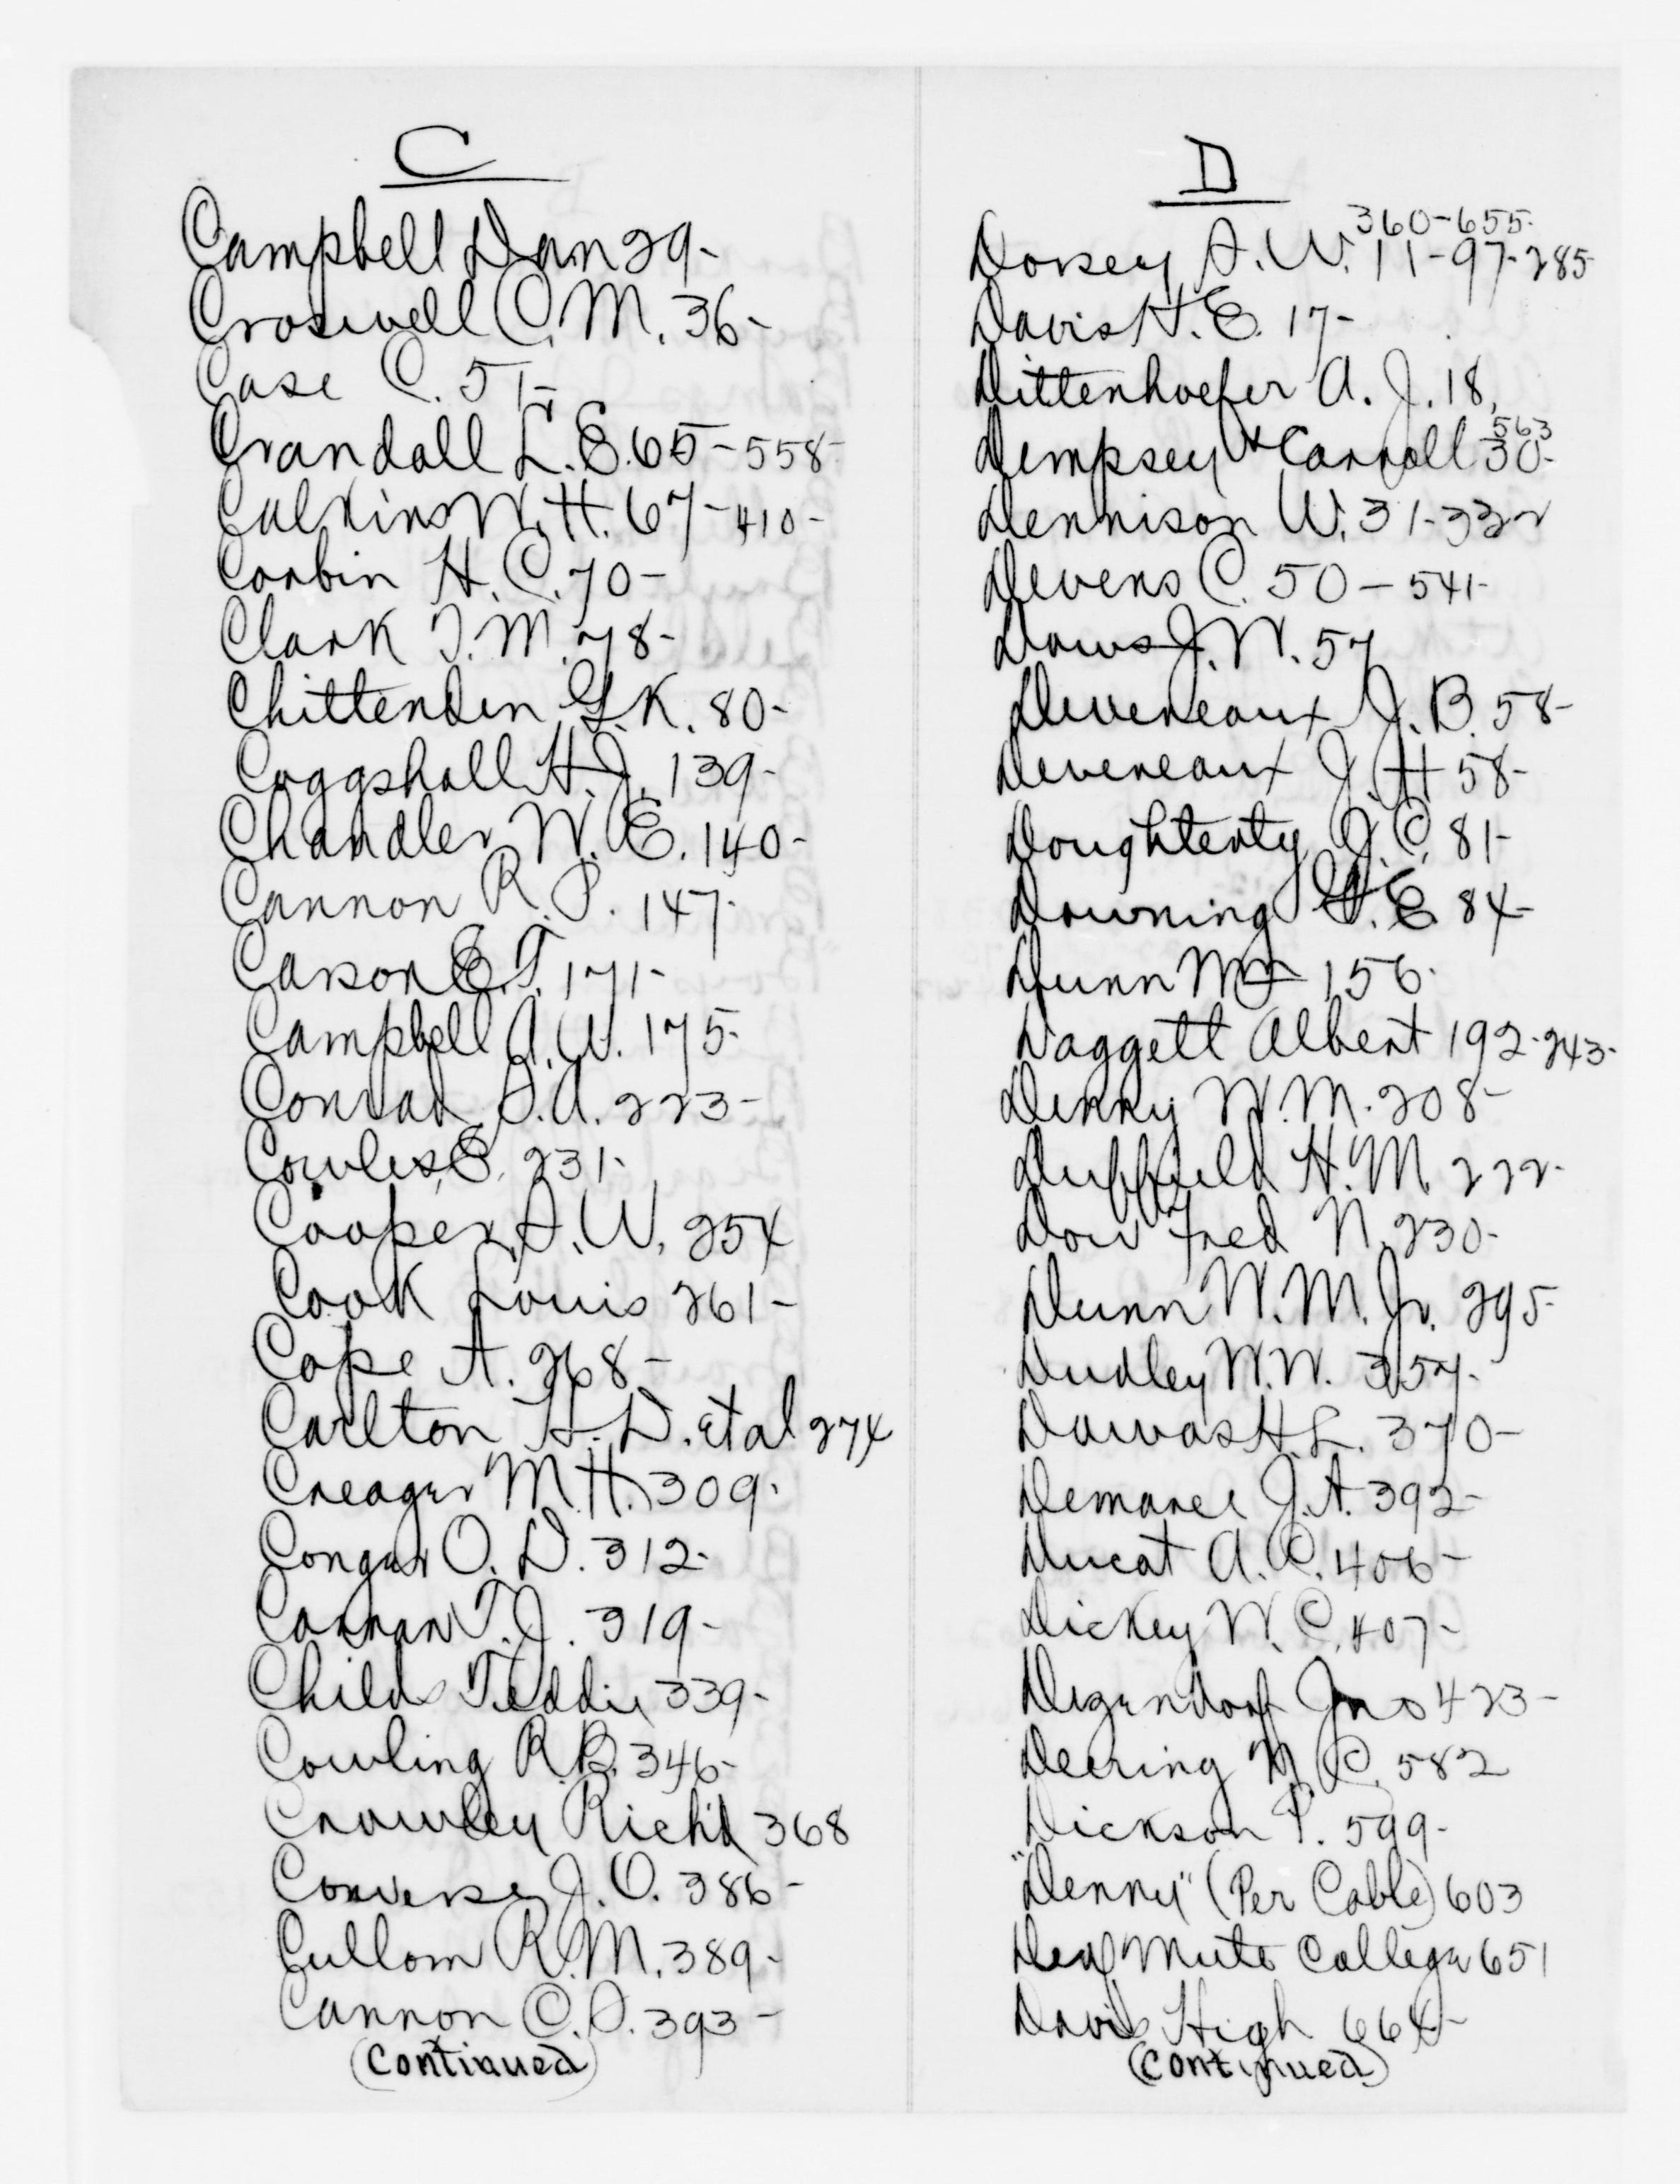 C
Campbell Dan 29-
Croswell C. M. 36-
Case C. 51-
Crandall L. E. 65-558-
Calkins W. H. 67-410-
Corbin H. C. 70-
Clark T. M. 78-
Chittenden G. K. 80-
Coggshall H. J. 139-
Chandler W. E. 140-
Cannon R. P. 147-
Carson E. T. 171-
Campbell A. W. 175-
Conrad S. A. 223-
Cowles, E. 231-
Cooper, S. W. 254
Cook Louis 261-
Cope A. 268-
Carlton H. D. et al 274
Creager M. H. 309-
Conger O. D. 312-
Carman T. J. 319-
Childs Teddie 339-
Cowling R. B. 346-
Crowley Rich'd 368
Converse J. O. 386-
Cullom R. M. 389-
Cannon C. S. 393-
(Continued)
D
360-655-
Dorsey S. W. 11-97-285-
Davis H. E. 17-
Dittenhoefer A. J. 18,
563
Dempsey & Carroll 30-
Dennison W. 31-332
Devens C. 50-541-
Daws J. W. 57
Deveneaux J. B. 58-
Deveneaux J. H 58-
Doughterty J. C. 81-
Downing E. 84-
Dunn 156-
Daggett Albert 192-243-
Denny W. M. 208-
Duffield H. M. 222-
Dow Fred N. 230-
Dunn W. M. Jr. 295-
Dudley W. W. 357-
Dawas H. L. 370-
Demaree J. A. 392-
Ducat A. C. 406-
Dickey W. C. 407-
Dezendorf Jno 423-
Deering N. C. 582
Dickson P. 599-
"Denny" (Per Cable) 603
Deaf Mute College 651
Davis High 664-
(Continued)